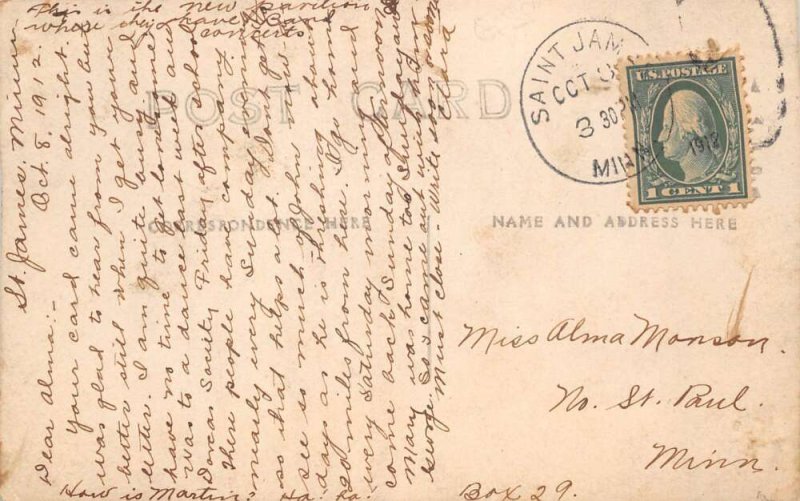 This is the new pavilion
where they have Band
concerts
POST CARD
CORRESPONDENCE HERE
NAME AND ADDRESS HERE
SAINT JAM
OCT
3 30 PM
1912
MINN
U.S. POSTAGE
1 CENT 1
St. James, Minn.
Oct. 8, 1912.
Dear Alma:-
Your card came alright.
was glad to hear from you but
better still when I get your
letter. I am quite busy and
have no time to get lonesome
was to a dance last week and
Dorcas Society Friday after school
then people have company
nearly every Sunday evening
so that helps alot. I don't get to
see so much of John now-
days as he is threshing about
20 miles from here. I go home
every Saturday morning and
come back Sunday afternoon
Mary was home too Saturday and
George S. came out with
Must close. Write soon
Clara
How is Martin? Ha! ha!
Miss Alma Monson.
No. St. Paul.
Minn.
Box 29.